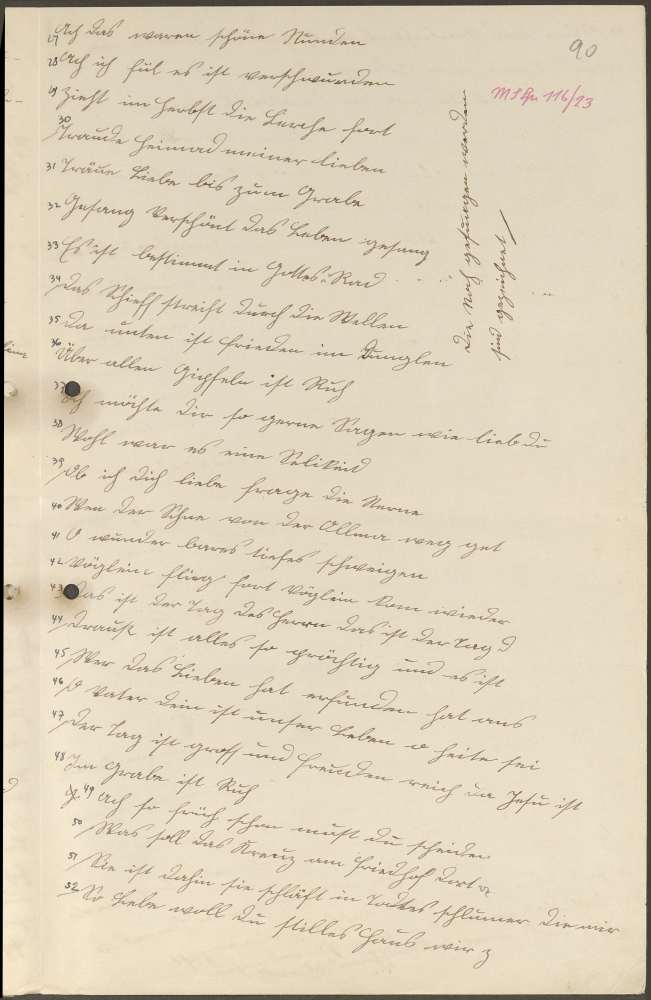 90
27 Ach das waren schöne Stunden
28 Ach ich fül es ist verschwunden
29 Zieht im Herbst die Lerche fort
30 Traude Heimad meiner lieben
31 Träue Liebe bis zum Grabe
32 Gesang Verschönt das Leben gesang
33 Es ist bestimmt in Gottes Rad
34 Das Schieff streift durch die Wellen
35 Da unten ist Frieden im
36 Über allen Gipfeln ist Ruh
37 Ich möchte dir so gerne Sagen wie lieb du
38 Wohl war es eine Selikeid
39 Ob ich dich liebe frage die Sterne
40 Wen der Schne von der Allma weg get
41 O wunder bares tiefes schweigen
42 Vöglein flieg fort Vöglein kom wieder
43 Das ist der Tag des Herrn das ist der Tag d
44 Drauß ist alles so prächtig und es ist
45 Wer das Lieben hat erfunden hat ans
46 O Vater dein ist unser Leben o heite sei
47 Der Tag ist groß und freuden reich da Jesu ist
48 Im Grabe ist Ruh
49 Ach so früh schon must du scheiden
50 Was soll das Kreuz am Friedhof dort
51 Sie ist dahin sie schläft in Todes schlumer die mir
52 So Lebe woll du stilles Haus wir z
die Noch gesungen werden
sind gezeichnet /
MS Gr. 116/23